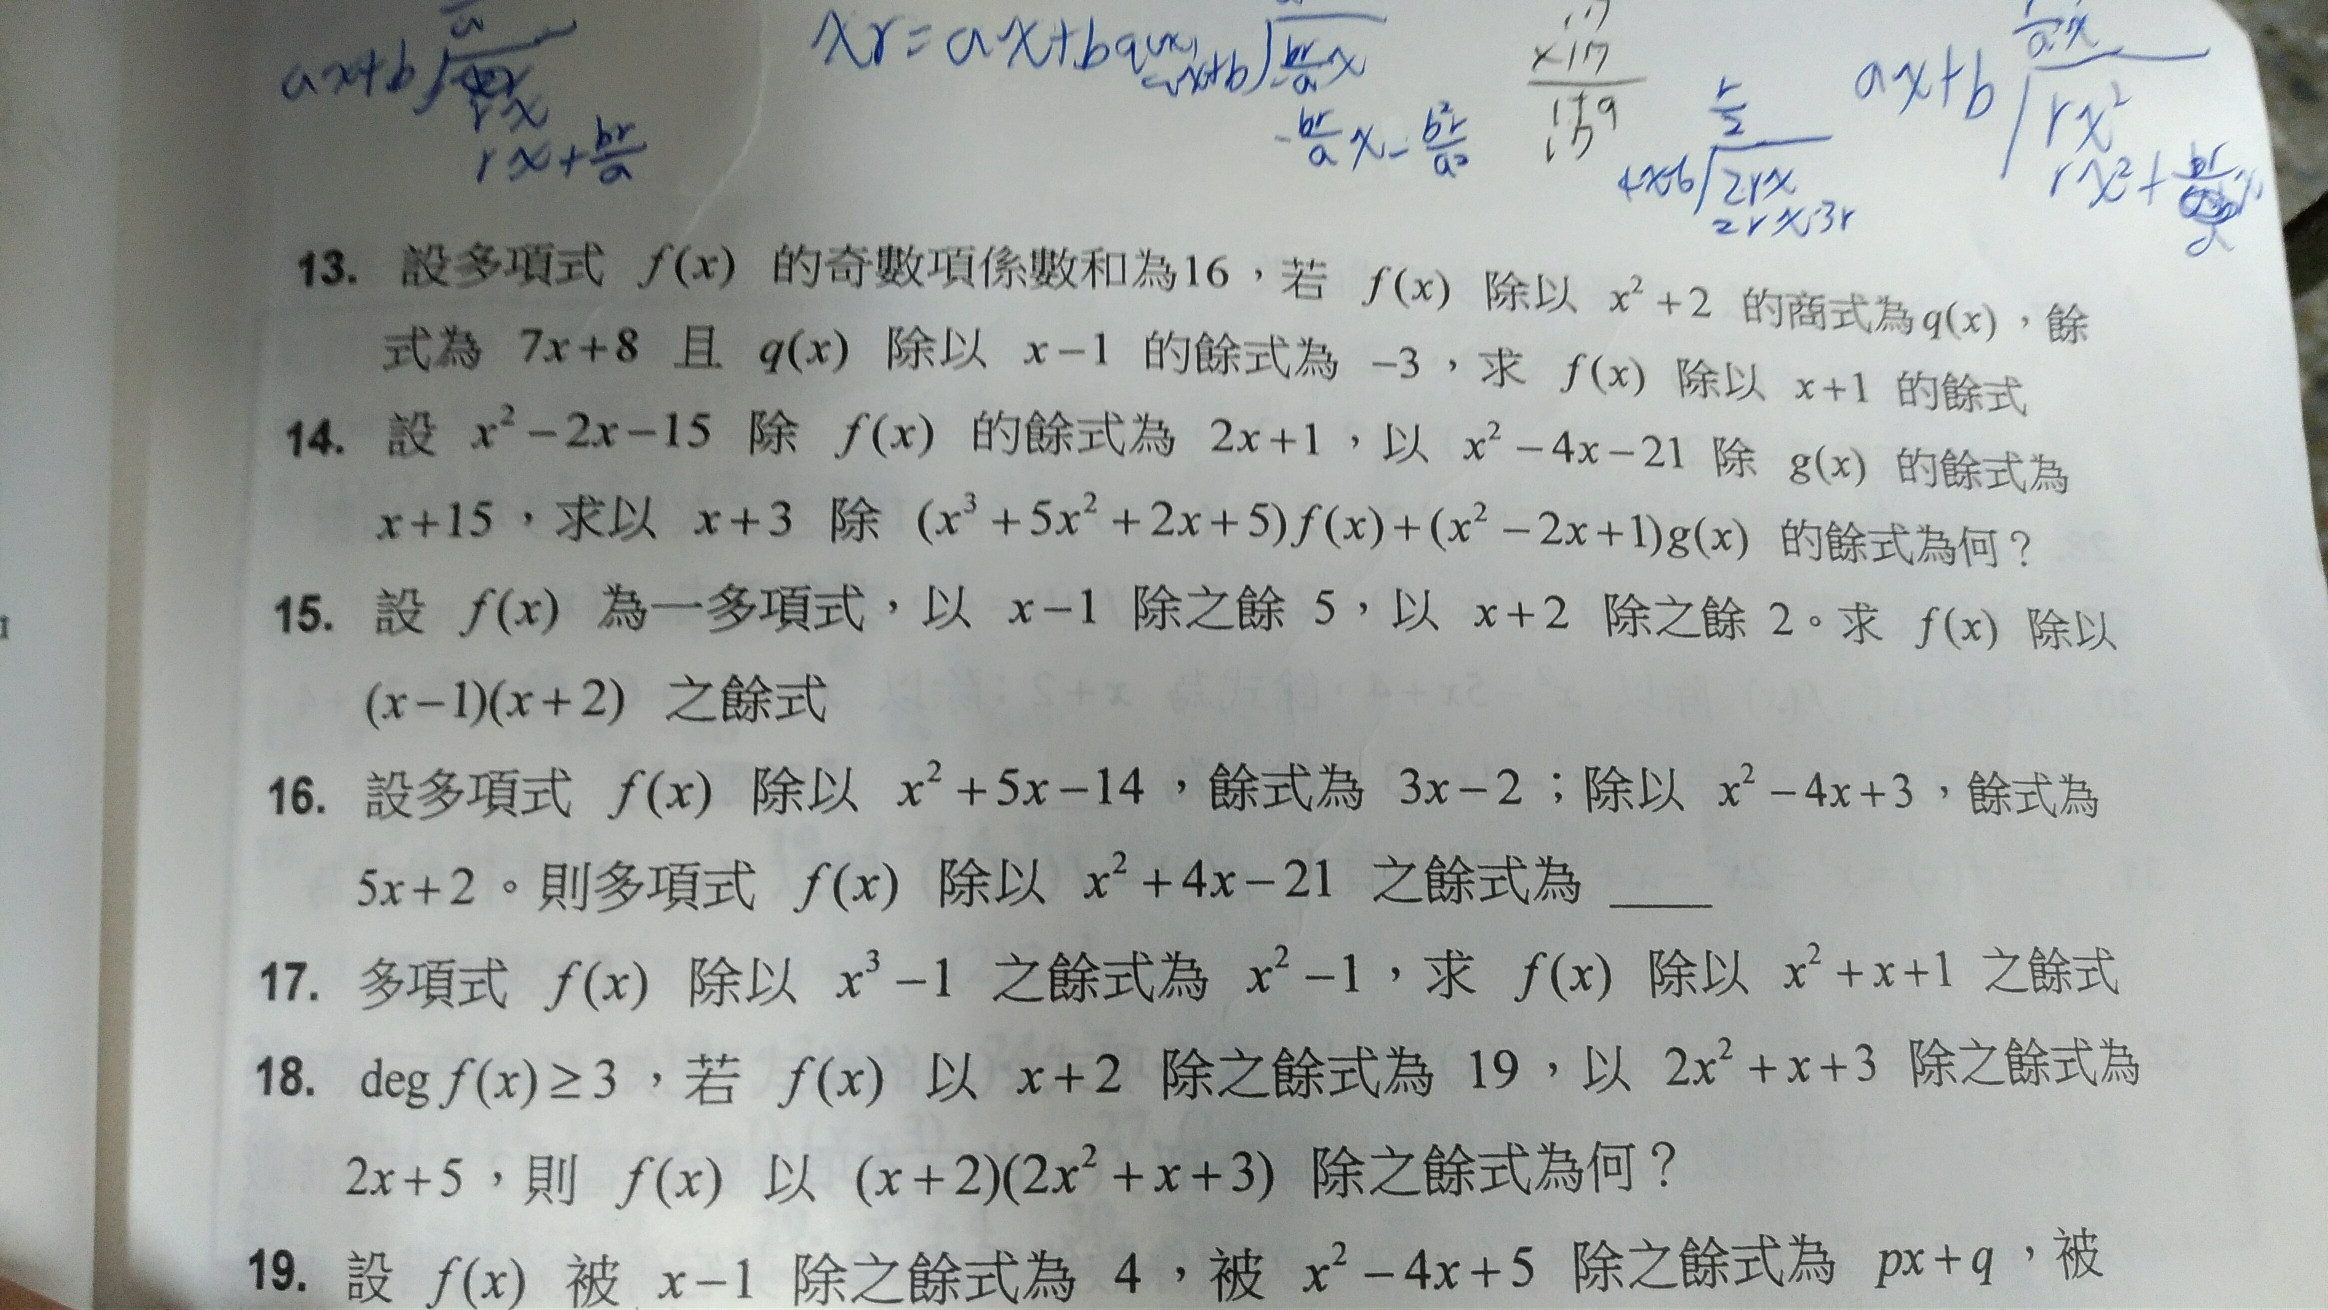 ax+b
rx
rx+br/a
xr=ax+b q(x)
ax+b) -br/a x
-br/a x - b²r/a²
x17
119
17
r/2
4x-6) 2rx
2rx-3r
ax+b) rx²
rx²+
13. 設多項式 f(x) 的奇數項係數和為16，若 f(x) 除以 x²+2 的商式為q(x)，餘
式為 7x+8 且 q(x) 除以 x−1 的餘式為 −3，求 f(x) 除以 x+1 的餘式
14. 設 x²−2x−15 除 f(x) 的餘式為 2x+1，以 x²−4x−21 除 g(x) 的餘式為
x+15，求以 x+3 除 (x³+5x²+2x+5)f(x)+(x²−2x+1)g(x) 的餘式為何？
15. 設 f(x) 為一多項式，以 x−1 除之餘 5，以 x+2 除之餘 2。求 f(x) 除以
(x−1)(x+2) 之餘式
16. 設多項式 f(x) 除以 x²+5x−14，餘式為 3x−2；除以 x²−4x+3，餘式為
5x+2。則多項式 f(x) 除以 x²+4x−21 之餘式為 ____
17. 多項式 f(x) 除以 x³−1 之餘式為 x²−1，求 f(x) 除以 x²+x+1 之餘式
18. deg f(x)≥3，若 f(x) 以 x+2 除之餘式為 19，以 2x²+x+3 除之餘式為
2x+5，則 f(x) 以 (x+2)(2x²+x+3) 除之餘式為何？
19. 設 f(x) 被 x−1 除之餘式為 4，被 x²−4x+5 除之餘式為 px+q，被